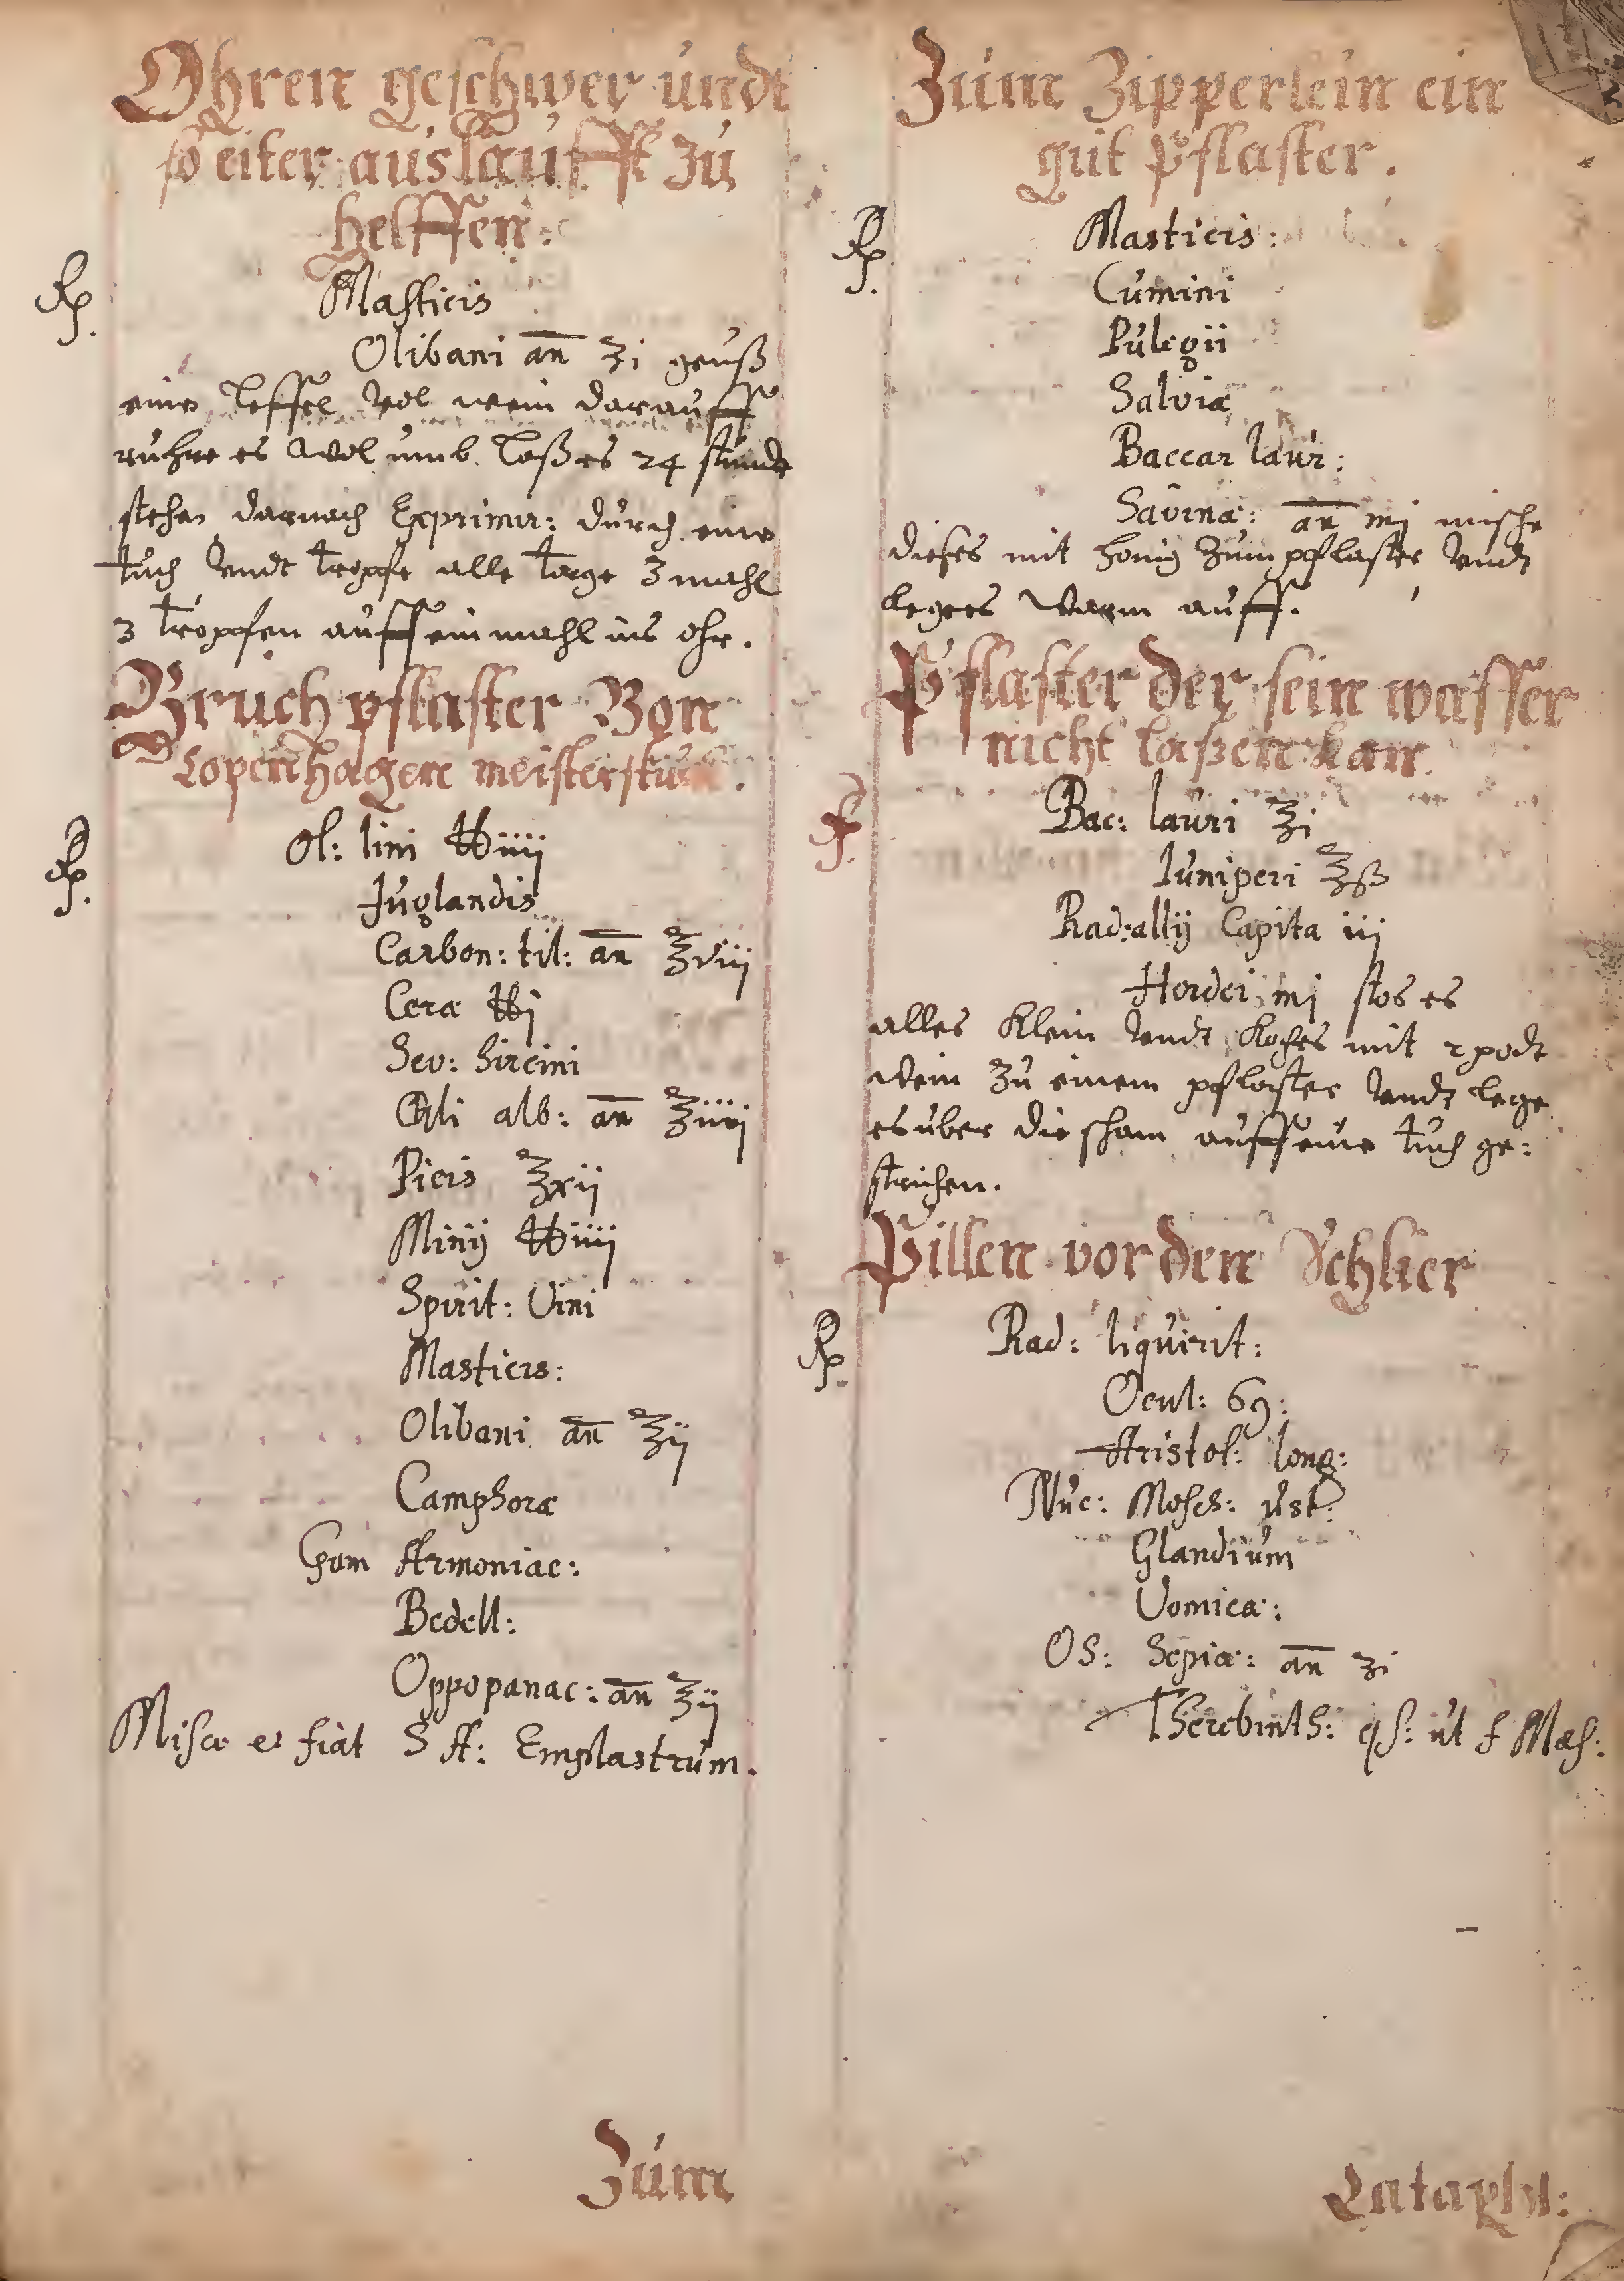 Ohren geschwer undt
so eiter auslaufft zu
helffen:
Rp.
Masticis
Olibani an ʒi geuß
eine leffel vol wein darauff
ruhre es wol umb. laß es 24 stunde
stehen darnach Exprimir: durch eine
tuch vndt tropfe alle tage 3 mahl
3 tropfen auff ein mahl ins ohr.
Bruch pflaster Von
Copenhagen meisterstuck.
Rp.
Ol: lini ℔iiij
Juglandis
Carbon: til: an ℥viij
Cera ℔j
Sev: hircini
alb: an ℥iiij
Picis ℥xij
Minij ℔iiij
Spirit: Vini
Masticis:
Olibani an ℥ij
Camphoræ
Gum Armoniac:
Bedell:
Oppopanac: an ℥ij
Misce et fiat S A: Emplastrum.
Zum
Zum Zipperlein ein
gut pflaster.
Rp.
Masticis:
Cumini
Pulegii
Salviæ
Baccar laur:
Savinæ: an mj mische
dieses mit honig zum pflaster vndt
leges warm auff.
Pflaster der sein wasser
nicht laßen kan.
Rp.
Bac: lauri ℥i
Iuniperi ℥ß
Rad: allij Capita iij
Hordei mj stos es
alles klein vndt koches mit 2 podt
wein zu einem pflaster vndt lege
es uber die scham auff eine tuch ge:
strichen.
Pillen vor den Schlier
Rp.
Rad: liquirit:
Ocul: 69:
Aristol: long:
Nuc: Mosch: ust:
Glandium
Vomica:
OS: Sepiæ: an ʒi
Therebinth: qs: ut f Mas:
Cataphl: